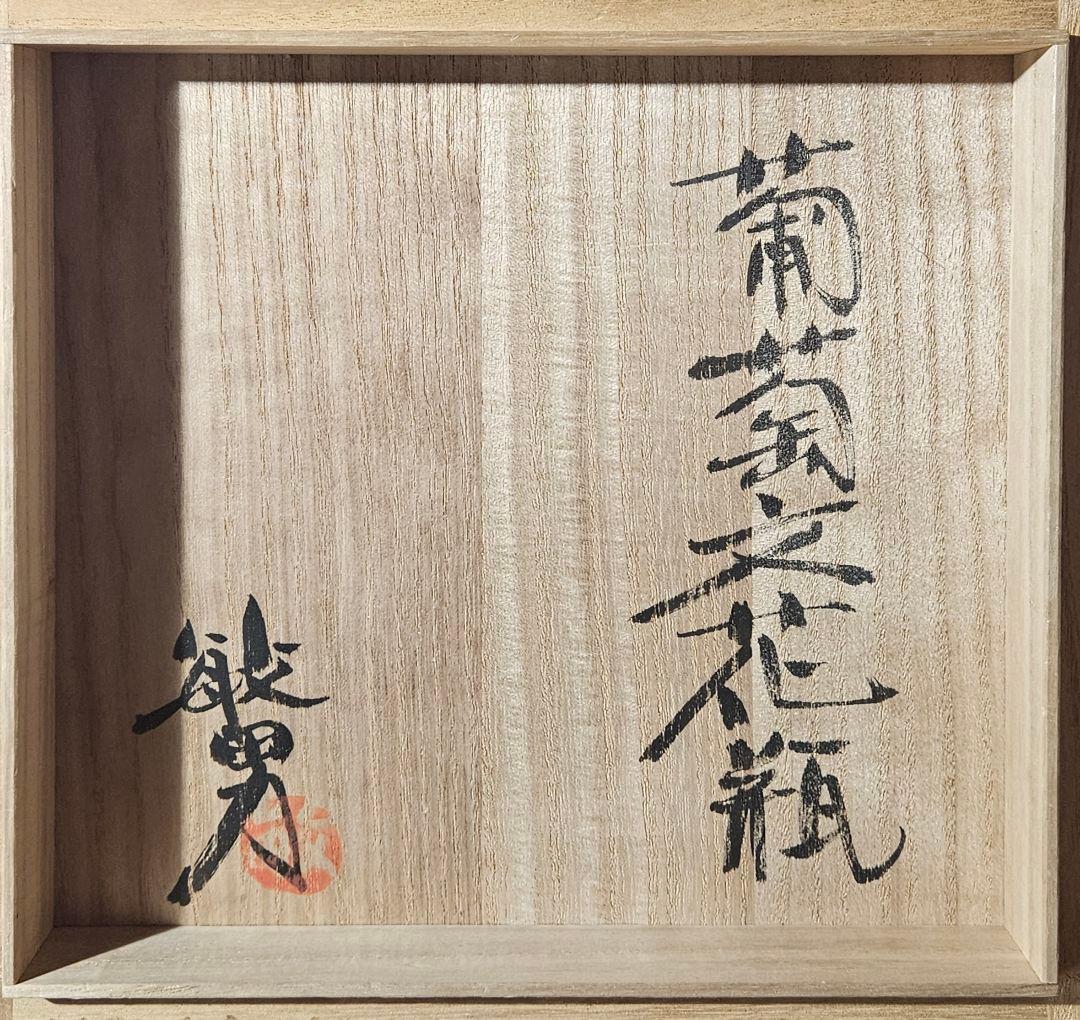 葡萄文花瓶
敏男